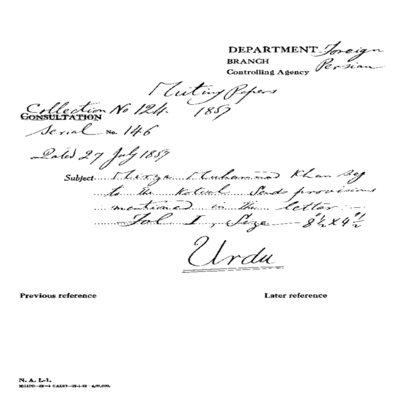 DEPARTMENT Foreign
BRANCH Persian
Controlling Agency
Mutiny Papers
Collection No 124. 1857
CONSULTATION
Serial No. 146
Dated 27 July 1857
Subject Mirza Muhammad Khan Beg
to the Kotwal. Sends provisions
mentioned in the letter.
Fol I, Size - 8½ x 4½
Urdu
Previous reference Later reference
N. A. L-1.